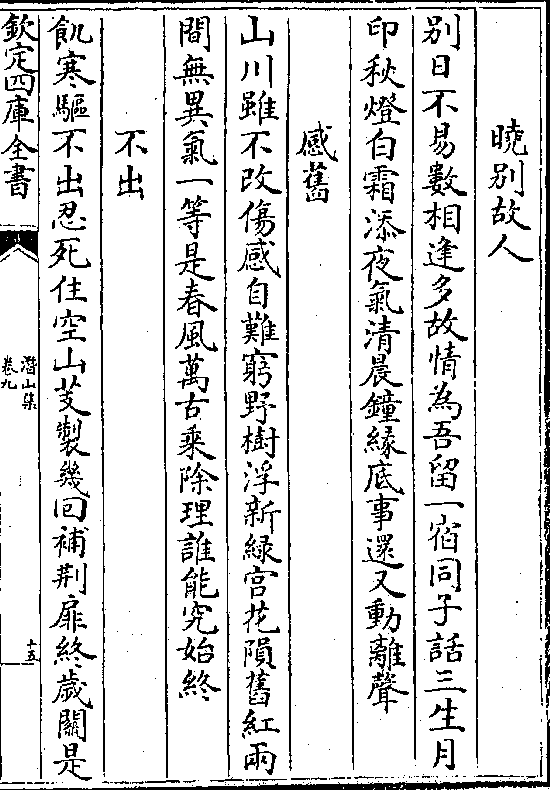 曉別故人
別日不易數相逢多故情為吾留一宿同子話三生月
印秋燈白霜添夜氣清晨鐘緣底事還又動離聲
感舊
山川雖不改傷感自難窮野樹浮新緑宫花隕舊紅兩
間無異氣一等是春風萬古乘除理誰能究始終
不出
飢寒驅不出忍死住空山芰製幾回補荆扉終歲關是
欽定四庫全書
潛山集
卷九
十五